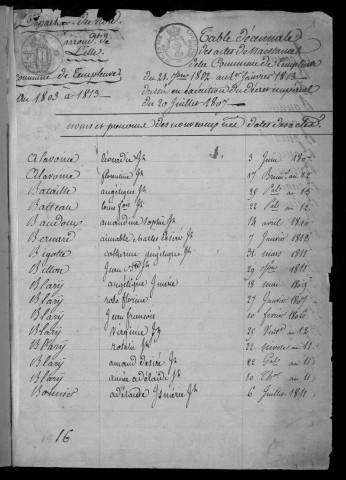 Départ. du Nord
arrond. de
Lille
Commune de Templeuve
an 1803 a 1813
Table Décennale
des actes de Naissance
De la Commune de Templeuve
du 21. 7bre 1802 au 1er Janvier 1813
dressée en exécution du décret impérial
du 20 Juillet 1807
noms et prénoms des nouveaux nés dates des actes
Alavoine Léocadie Jh 3 Juin 1807
Alavoine florentine Jh 17 Brum. an 12
Bataille angélique Jh 29 an 13
Batteau louis fois Jh 22 an 12
Baudoux amandine Sophie Jh 14 avril 1810
Bernard aimable charles désiré Jh 7 Janvier 1812
Bigotte catherine angélique Jh 31 mars 1811
Billon Jean Bte Jh 29 9bre 1811
Blary angélique Jh 18 mai 1809
Blary rose florine 27 Janvier 1807
Blary Jean françois 10 fevrier 1806
Blary Virginie Jh 25 Vent. an 12
Blary rosalie Jh 22 an 11
Blary amand désiré Jh 22 an 11
Blary aimée adélaïde Jh 10 an 11
Bonnier adélaïde Jh 6 Juillet 1811
16